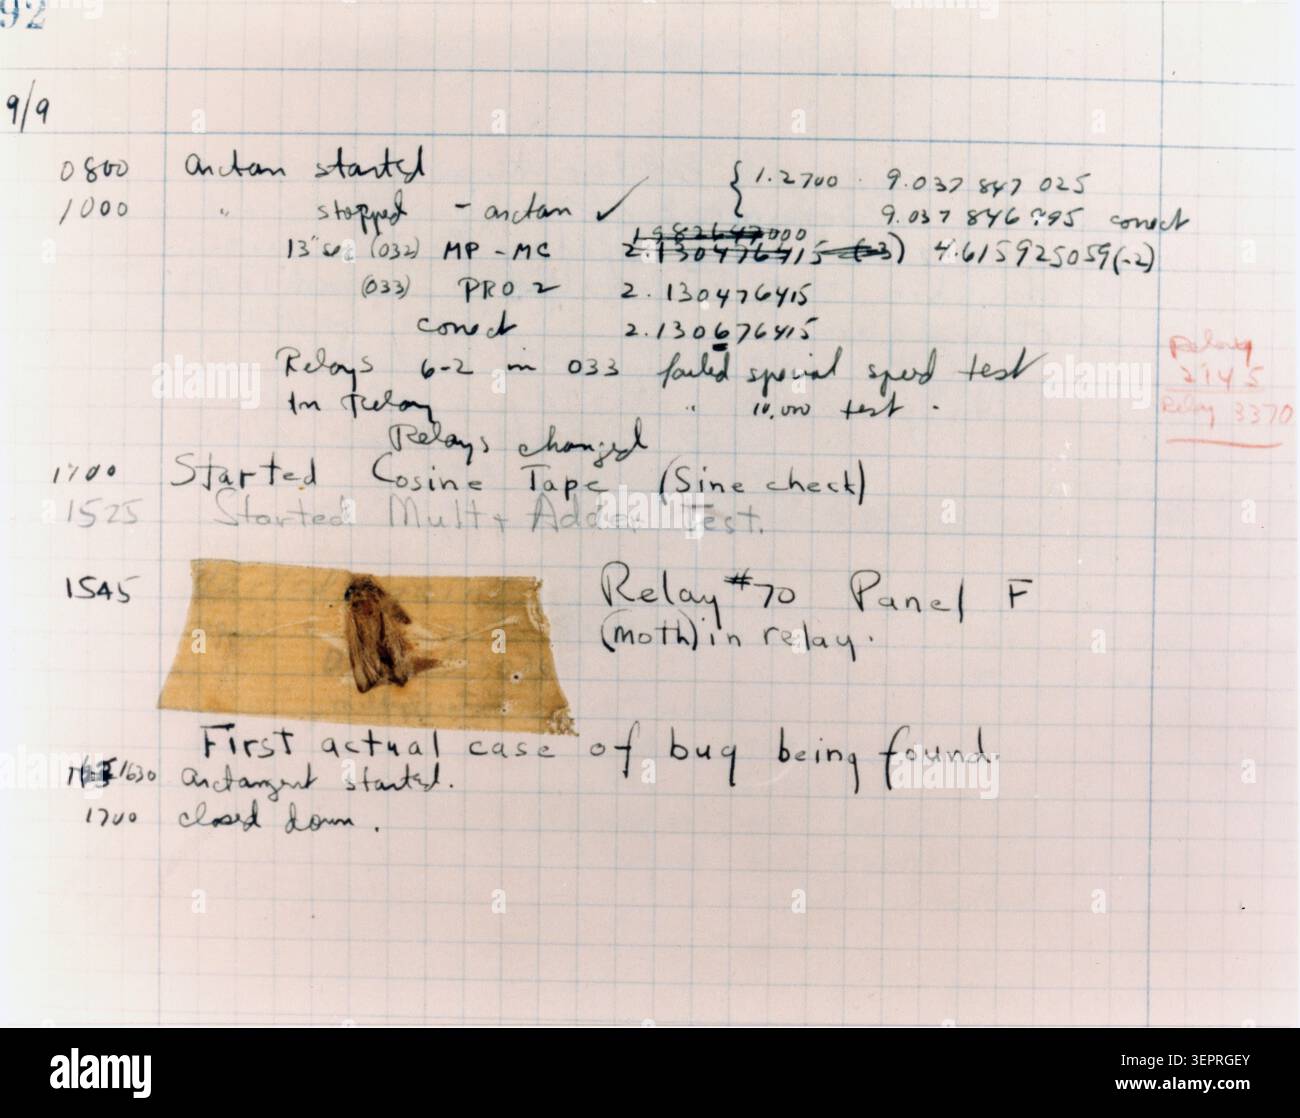 92
9/9
0800 arctan started { 1.2700 9.037 847 025
1000 " stopped - arctan ✓ 9.037 846 795 correct
000
13" (032) MP - MC 2.130476415 (-3) 4.615925059(-2)
(033) PRO 2 2.130476415
correct 2.130676415
Relays 6-2 in 033 failed special speed test
In Relay " 10,000 test .
Relay
2145
Relay 3370
Relays changed
1700 Started Cosine Tape (Sine check)
1525 Started Mult + Adder Test.
1545 Relay #70 Panel F
(moth) in relay.
First actual case of bug being found.
1630 arctangent started.
1700 closed down .
alamy
Image ID: 3EPRGEY
www.alamy.com